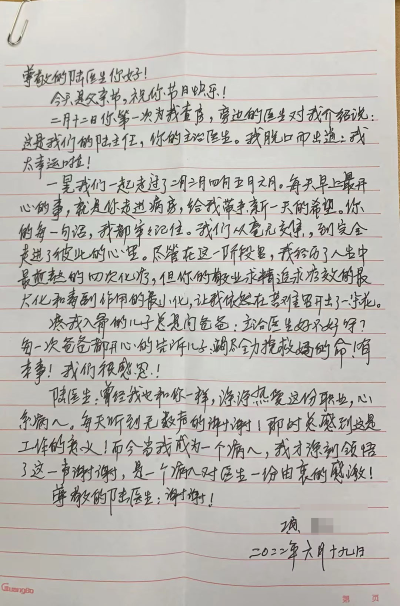 尊敬的陆医生你好！
今天是父亲节，祝你节日快乐！
二月十二日你第一次为我查房，旁边的医生对我介绍说：
这是我们的陆主任，你的主治医生。我脱口而出道：我
太幸运啦！
一晃我们一起走过了二月三月四月五月六月。每天早上最开
心的事，就是你走进病房，给我带来新一天的希望。你
的每一句话，我都牢牢记住。我们从毫无交集，到完全
走进了彼此的心里。尽管在这一阶段里，我经历了人生中
最艰熬的四次化疗，但你的敬业求精追求疗效的最
大化和毒副作用的最小化，让我依然在苦难里开出了一朵花。
疼我入骨的儿子总是问爸爸：主治医生好不好呀？
每一次爸爸都开心的告诉儿子：竭尽全力挽救妈的命！有
本事！我们很感恩！
陆医生：曾经我也和你一样，深深热爱这份职业，心
系病人。每天听到无数声的谢谢！那时总感到这是
工作的意义！而今当我成为一个病人，我才深刻领悟
了这一声谢谢，是一个病人对医生一份由衷的感激！
尊敬的陆医生：谢谢！
2022年六月十九日
Guangbo
第 页